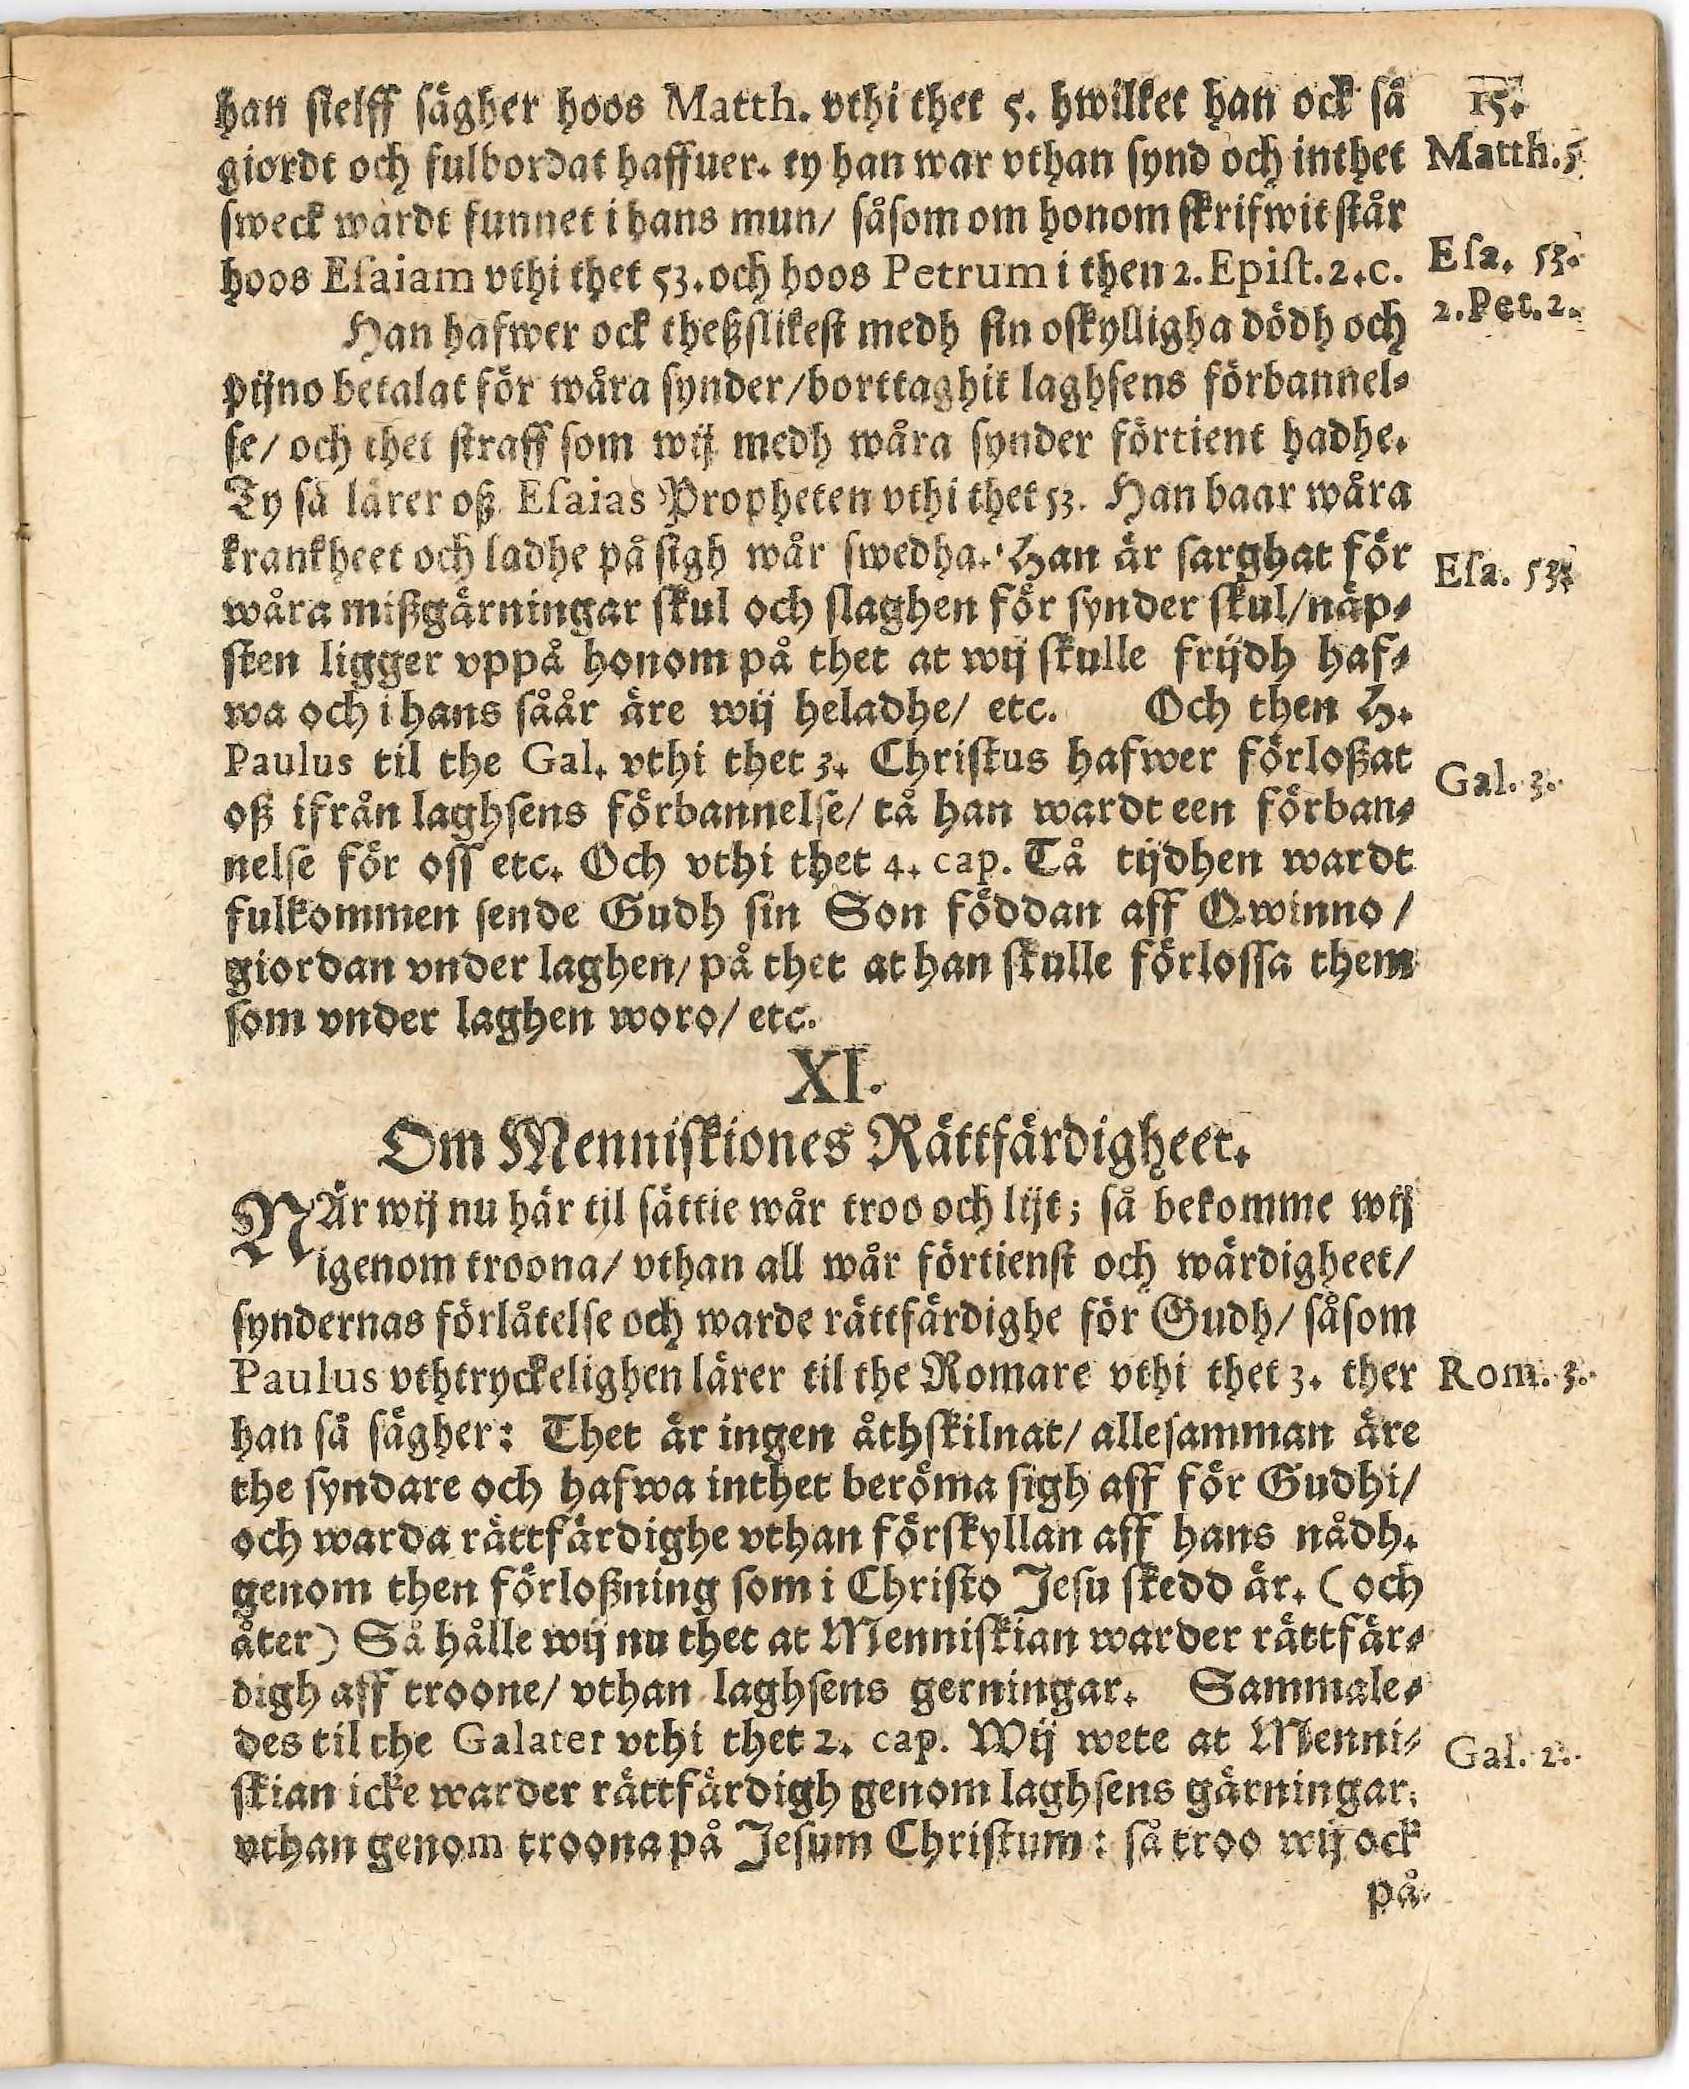 15.
han sielff sägher hoos Matth. vthi thet 5. hwilket han ock så
Matth. 5
giordt och fulbordat haffuer. ty han war vthan synd och inthet
sweck wardt funnet i hans mun/ såsom om honom skrifwit står
Esa. 53.
hoos Esaiam vthi thet 53. och hoos Petrum i then 2. Epist. 2. c.
2. Pet. 2.
Han hafwer ock theßslikest medh sin oskylligha dödh och
pijno betalat för wåra synder/ borttaghit laghsens förbannel-
se/ och thet straff som wij medh wåra synder förtient hadhe.
Ty så lärer oß Esaias Propheten vthi thet 53. Han baar wåra
krankheet och ladhe på sigh wår swedha. Han är sarghat för
Esa. 53
wåra mißgärningar skul och slaghen för synder skul/ näp-
sten ligger vppå honom på thet at wij skulle frijdh haf-
wa och i hans såår äre wij heladhe/ etc. Och then H.
Paulus til the Gal. vthi thet 3. Christus hafwer förloßat
Gal. 3.
oß ifrån laghsens förbannelse/ tå han wardt een förban-
nelse för oss etc. Och vthi thet 4. cap. Tå tijdhen wardt
fulkommen sende Gudh sin Son föddan aff Qwinno/
giordan vnder laghen/ på thet at han skulle förlossa them
som vnder laghen woro/ etc.
XI.
Om Menniskiones Rättfärdigheet.
NÄr wij nu här til sättie wår troo och lijt; så bekomme wij
igenom troona/ vthan all wår förtienst och wärdigheet/
syndernas förlåtelse och warde rättfärdighe för Gudh/ såsom
Paulus vthtryckelighen lärer til the Romare vthi thet 3. ther
Rom. 3.
han så sägher: Thet är ingen åthskilnat/ allesamman äre
the syndare och hafwa inthet beröma sigh aff för Gudhi/
och warda rättfärdighe vthan förskyllan aff hans nådh.
genom then förloßning som i Christo Jesu skedd är. (och
åter) Så hålle wij nu thet at Menniskian warder rättfär-
digh aff troone/ vthan laghsens gerningar. Sammale-
des til the Galater vthi thet 2. cap. Wij wete at Menni-
Gal. 2.
skian icke warder rättfärdigh genom laghsens gärningar.
vthan genom troona på Jesum Christum: så troo wij ock
på